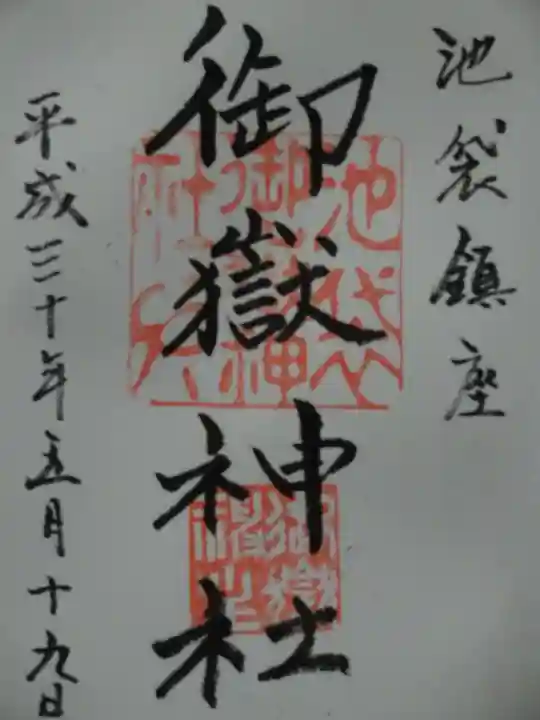 池袋鎮座
御嶽神社
平成三十年五月十九日
池袋
御嶽神
社